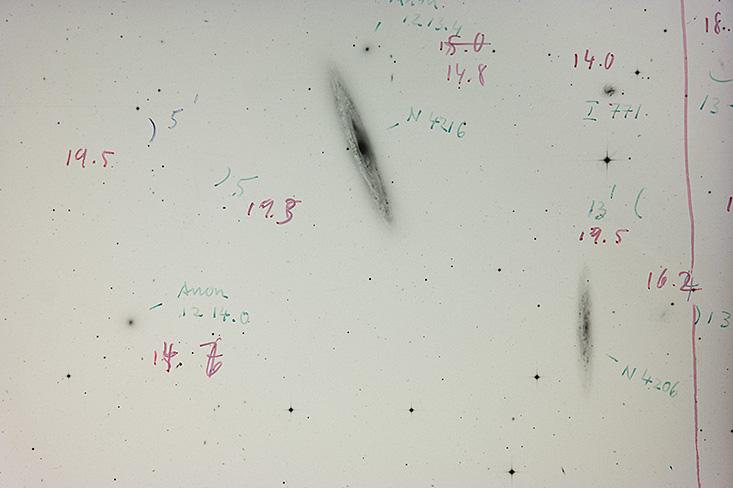 1213.4
15.0
14.8
14.0
18.
N 4216
I 771
13
5'
19.5
5
19.3
13'
19.5
16.2
Anon
1214.0
13
N 4206